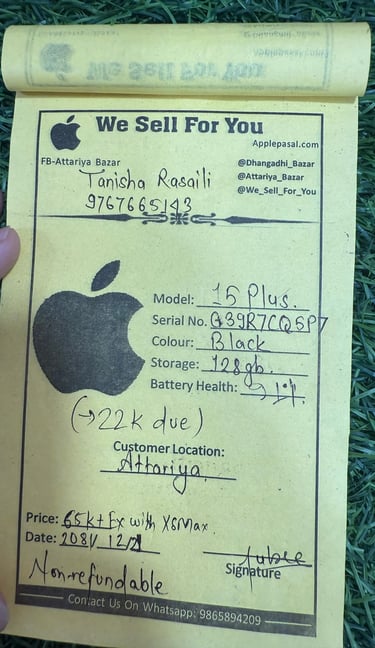 We Sell For You
Applepasal.com
FB-Attariya Bazar
@Dhangadhi_Bazar
Tanisha Rasaili
@Attariya_Bazar
9767665143
@We_Sell_For_You
Model: 15 Plus.
Serial No. G39R7CQ5P7
Colour: Black
Storage: 128gb.
Battery Health: 91%
(→22k due)
Customer Location:
Attariya
Price: 65k + Ex with XSMax.
Date: 2081/12/21
Signature
Non-refundable
Contact Us On Whatsapp: 9865894209